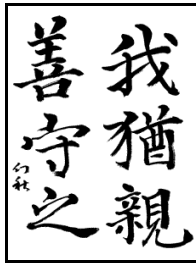 我猶親
善守之
幻秋